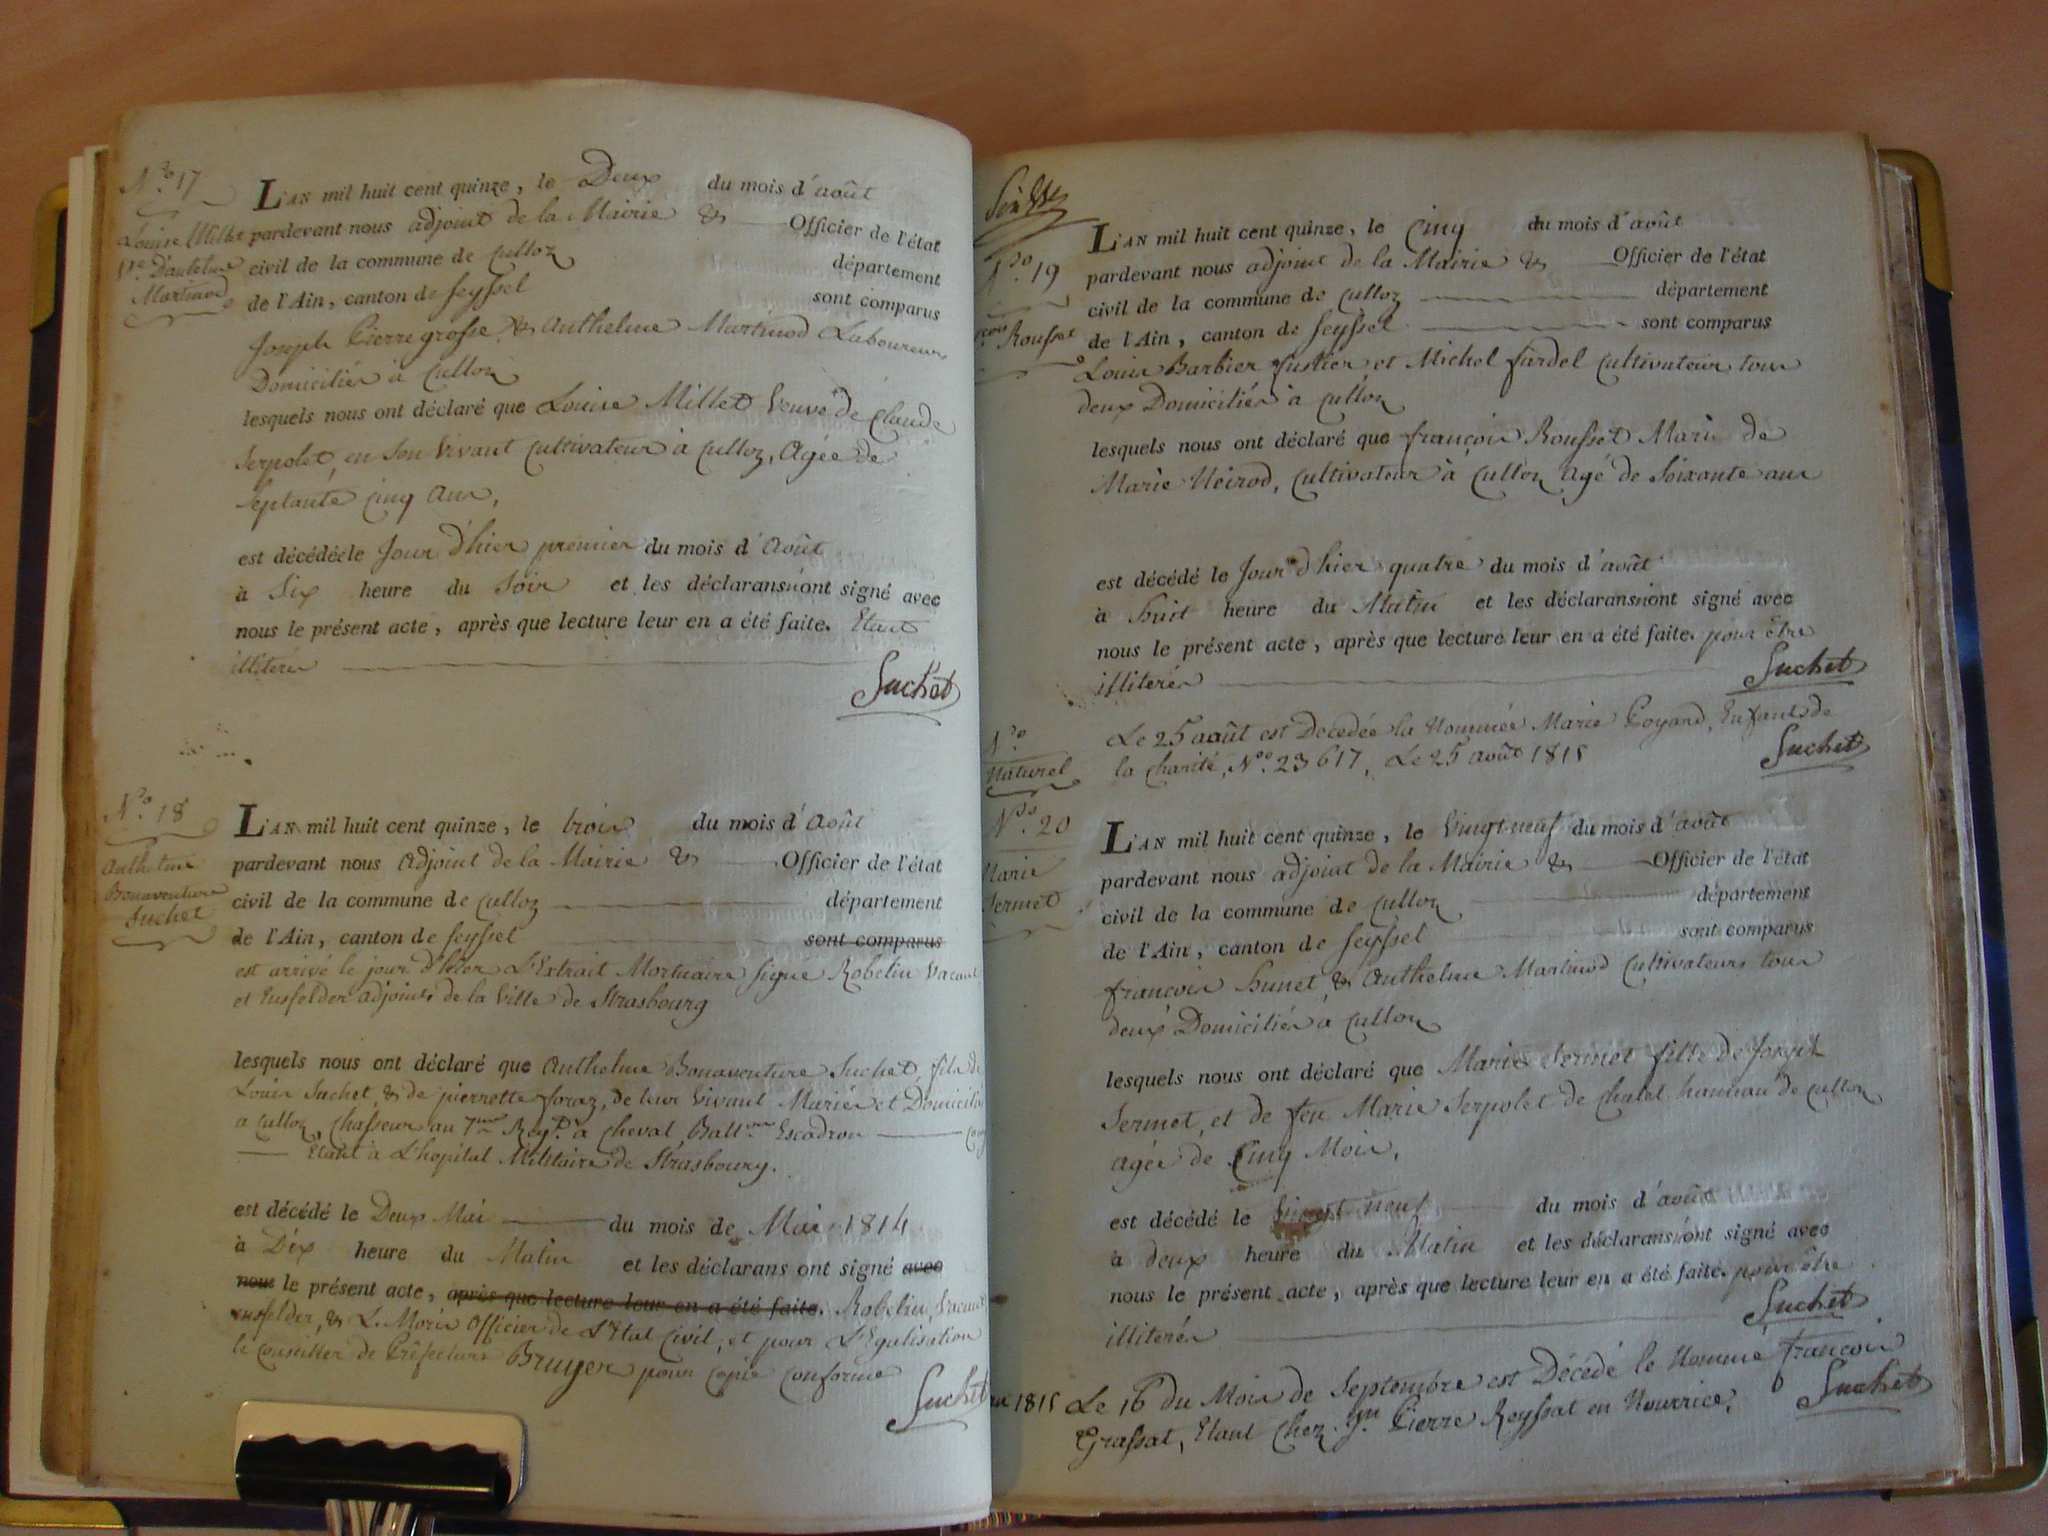 N.ro 17
Louise Millet
V.e D'anthelme
Martinod
L'AN mil huit cent quinze, le Deux du mois d'août
pardevant nous adjoint de la Mairie & Officier de l'état
civil de la commune de Culloz département
de l'Ain, canton de Seyssel sont comparus
Joseph Pierre grosse & Anthelme Martinod Laboureurs
Domiciliés à Culloz
lesquels nous ont déclaré que Louise Millet Veuve de Claude
Serpolet, en son vivant Cultivateur à Culloz, Agée de
Septante cinq ans,
est décédée le Jour d'hier premier du mois d'Août
à Six heure du Soir et les déclarans n'ont signé avec
nous le présent acte, après que lecture leur en a été faite. Etant
illiterés
Suchet
N.ro 18
Anthelme
Bonaventure
Suchet
L'AN mil huit cent quinze, le trois du mois d'Août
pardevant nous Adjoint de la Mairie & Officier de l'état
civil de la commune de Culloz département
de l'Ain, canton de Seyssel sont comparus
est arrivé le jour d'hier L'Extrait Mortuaire signé Robelin Vacant
et Ensfelder adjoints de la Ville de Strasbourg
lesquels nous ont déclaré que Anthelme Bonaventure Suchet, fils de
Louis Suchet, & de pierrette foraz, de leur Vivant Mariés et Domiciliés
a Culloz, Chasseur au 7.me Reg.t a Cheval, Bat.on Escadron
Etant à L'hopital Militaire de Strasbourg.
est décédé le Deux Mai du mois de Mai 1814
à Dix heure du Matin et les déclarans ont signé avec
nous le présent acte, après que lecture leur en a été faite. Robelin, Vacant
ensfelder, & L. Morin Officier de L'Etat Civil, et pour L'Egalisation
le Conseiller de Préfecture Bruyer pour copie conforme
Suchet
N.ro 19
Rousset
L'AN mil huit cent quinze, le Cinq du mois d'août
pardevant nous adjoint de la Mairie & Officier de l'état
civil de la commune de Culloz département
de l'Ain, canton de Seyssel sont comparus
Louis Barbier fustier et Michel fardel Cultivateur tous
deux Domiciliés à Culloz
lesquels nous ont déclaré que françois Rousset Mari de
Marie Neirod, Cultivateur à Culloz Agé de Soixante ans
est décédé le Jour d'hier quatre du mois d'août
à huit heure du Matin et les déclarans n'ont signé avec
nous le présent acte, après que lecture leur en a été faite. pour être
illiterés
Suchet
N.o
Naturel
Le 25 août est Decedée la Nommée Marie Goyand, Enfant de
la Charité, N.o 23617, Le 25 août 1815
Suchet
N.ro 20
Marie
Sermet
L'AN mil huit cent quinze, le Vingt neuf du mois d'août
pardevant nous adjoint de la Mairie & Officier de l'état
civil de la commune de Culloz département
de l'Ain, canton de Seyssel sont comparus
françois hunet, & Anthelme Martinod Cultivateurs tous
deux Domiciliés a Culloz
lesquels nous ont déclaré que Marie Sermet fille de Joseph
Sermet, et de feu Marie Serpolet de Chatel hameau de Culloz
agée de Cinq Mois,
est décédé le Vingt neuf du mois d'août
à deux heure du Matin et les déclarans n'ont signé avec
nous le présent acte, après que lecture leur en a été faite. pour être
illiterés
Suchet
1815 Le 16 du Mois de Septembre est Décédé le Nommé françois
Grassat, Etant Chez J.n Pierre Reyssat en Nourrice,
Suchet